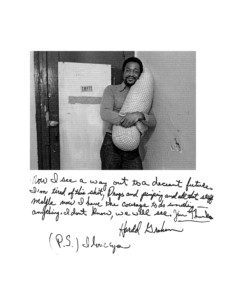 Now I see a way out to a decent future.
I'm tired of this shit, Drugs and pimping and all that stuff
maybe now I have the courage to do something —
anything. I don't know, we will see.
Harold
(P.S.) I love you